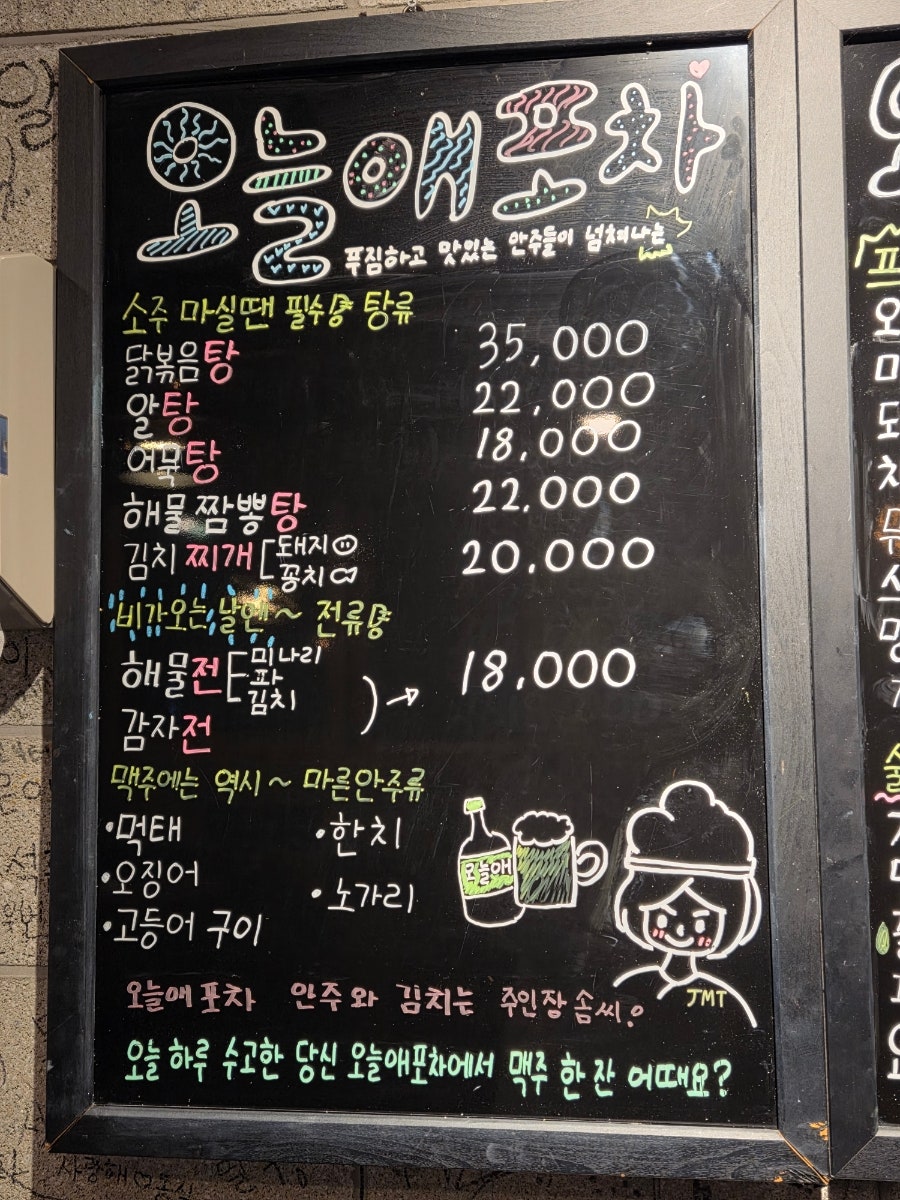 오늘애포차
푸짐하고 맛있는 안주들이 넘쳐나는
소주 마실땐 필수 탕류
닭볶음탕 35,000
알탕 22,000
어묵탕 18,000
해물 짬뽕탕 22,000
김치 찌개 돼지 꽁치 20,000
비가오는 날엔~ 전류
해물전 미나리 파 김치 → 18,000
감자전
맥주에는 역시~ 마른안주류
•먹태 •한치
•오징어 •노가리
•고등어 구이
오늘애
JMT
오늘애포차 안주와 김치는 주인장 솜씨.
오늘 하루 수고한 당신 오늘애포차에서 맥주 한 잔 어때요?
사랑해♡